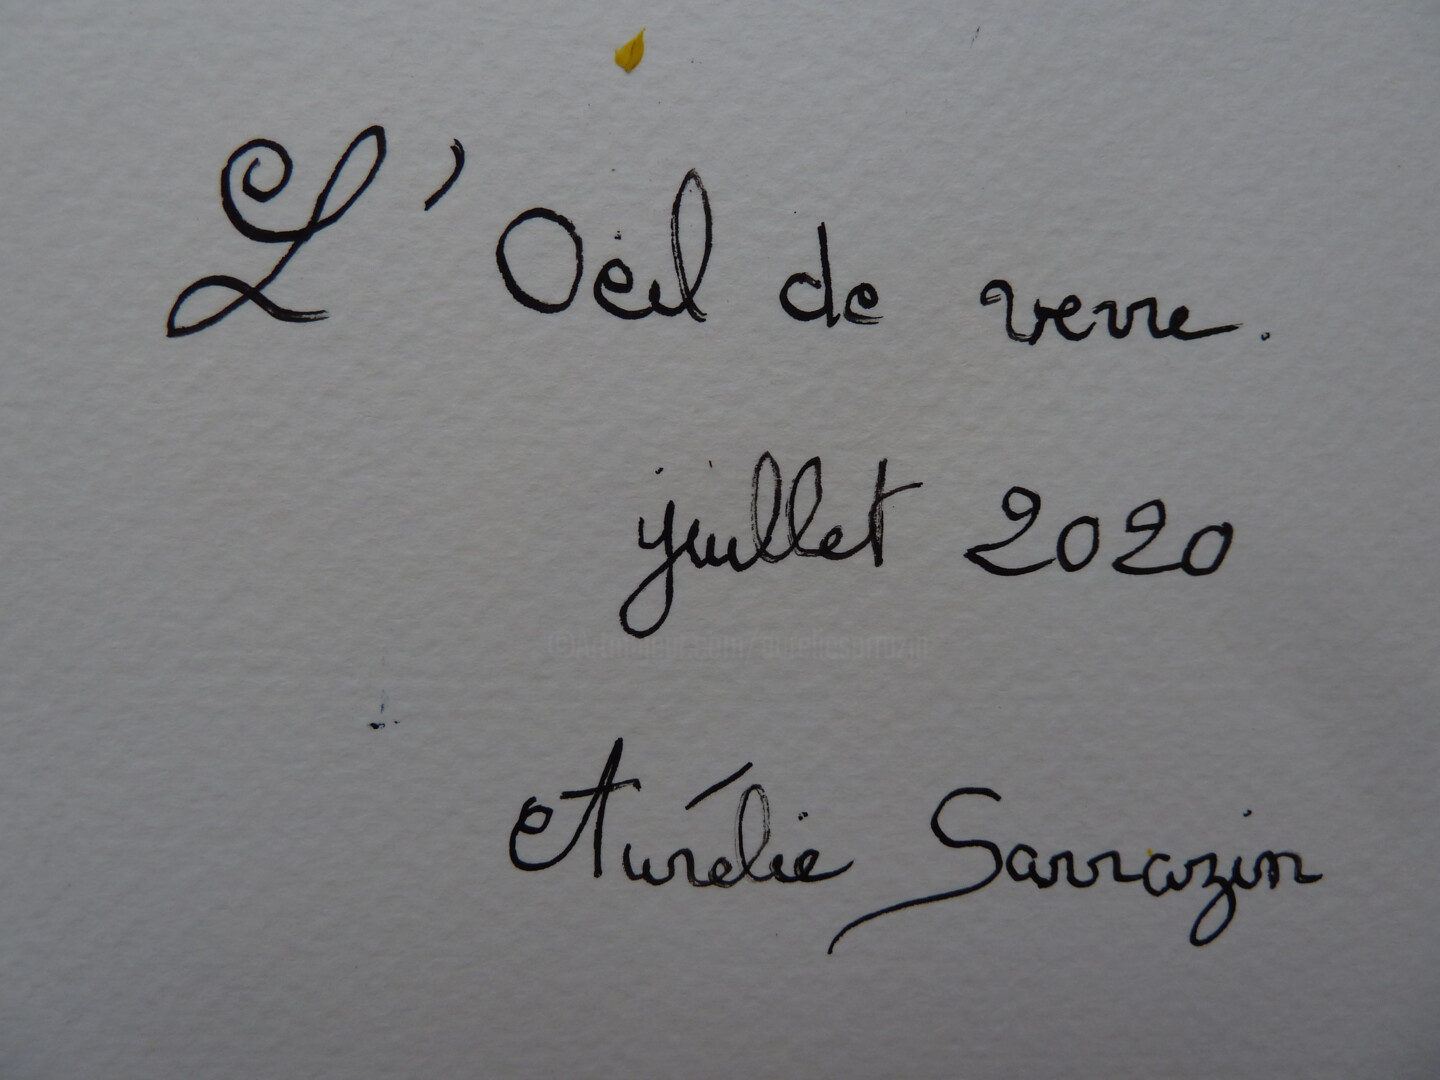 L'Oeil de verre.
juillet 2020
©Artmajeur.com/aureliesarrazin
Aurélie Sarrazin